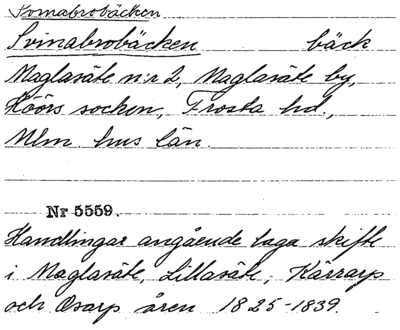 Svinabrobäcken
Svinabrobäcken bäck
Maglasäte n:r 2, Maglasäte by,
Höörs socken, Frosta hd.,
Mlm. hus län.
Nr 5559.
Handlingar angående laga skifte
i Maglasäte, Lillasäte, Kärrarp
och Osarp åren 1825-1839.